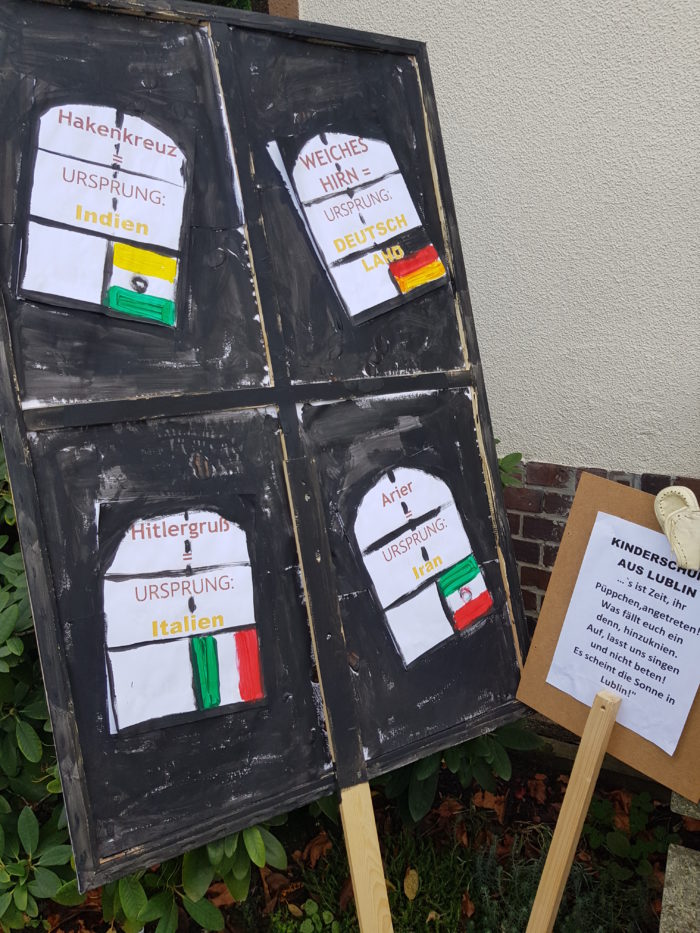 Hakenkreuz
=
URSPRUNG:
Indien
WEICHES
HIRN =
URSPRUNG:
DEUTSCH
LAND
Hitlergruß
=
URSPRUNG:
Italien
Arier
=
URSPRUNG:
Iran
KINDERSCHUH
AUS LUBLIN
...`s ist Zeit, ihr
Püppchen,angetreten!
Was fällt euch ein
denn, hinzuknien.
Auf, lasst uns singen
und nicht beten!
Es scheint die Sonne in
Lublin!"